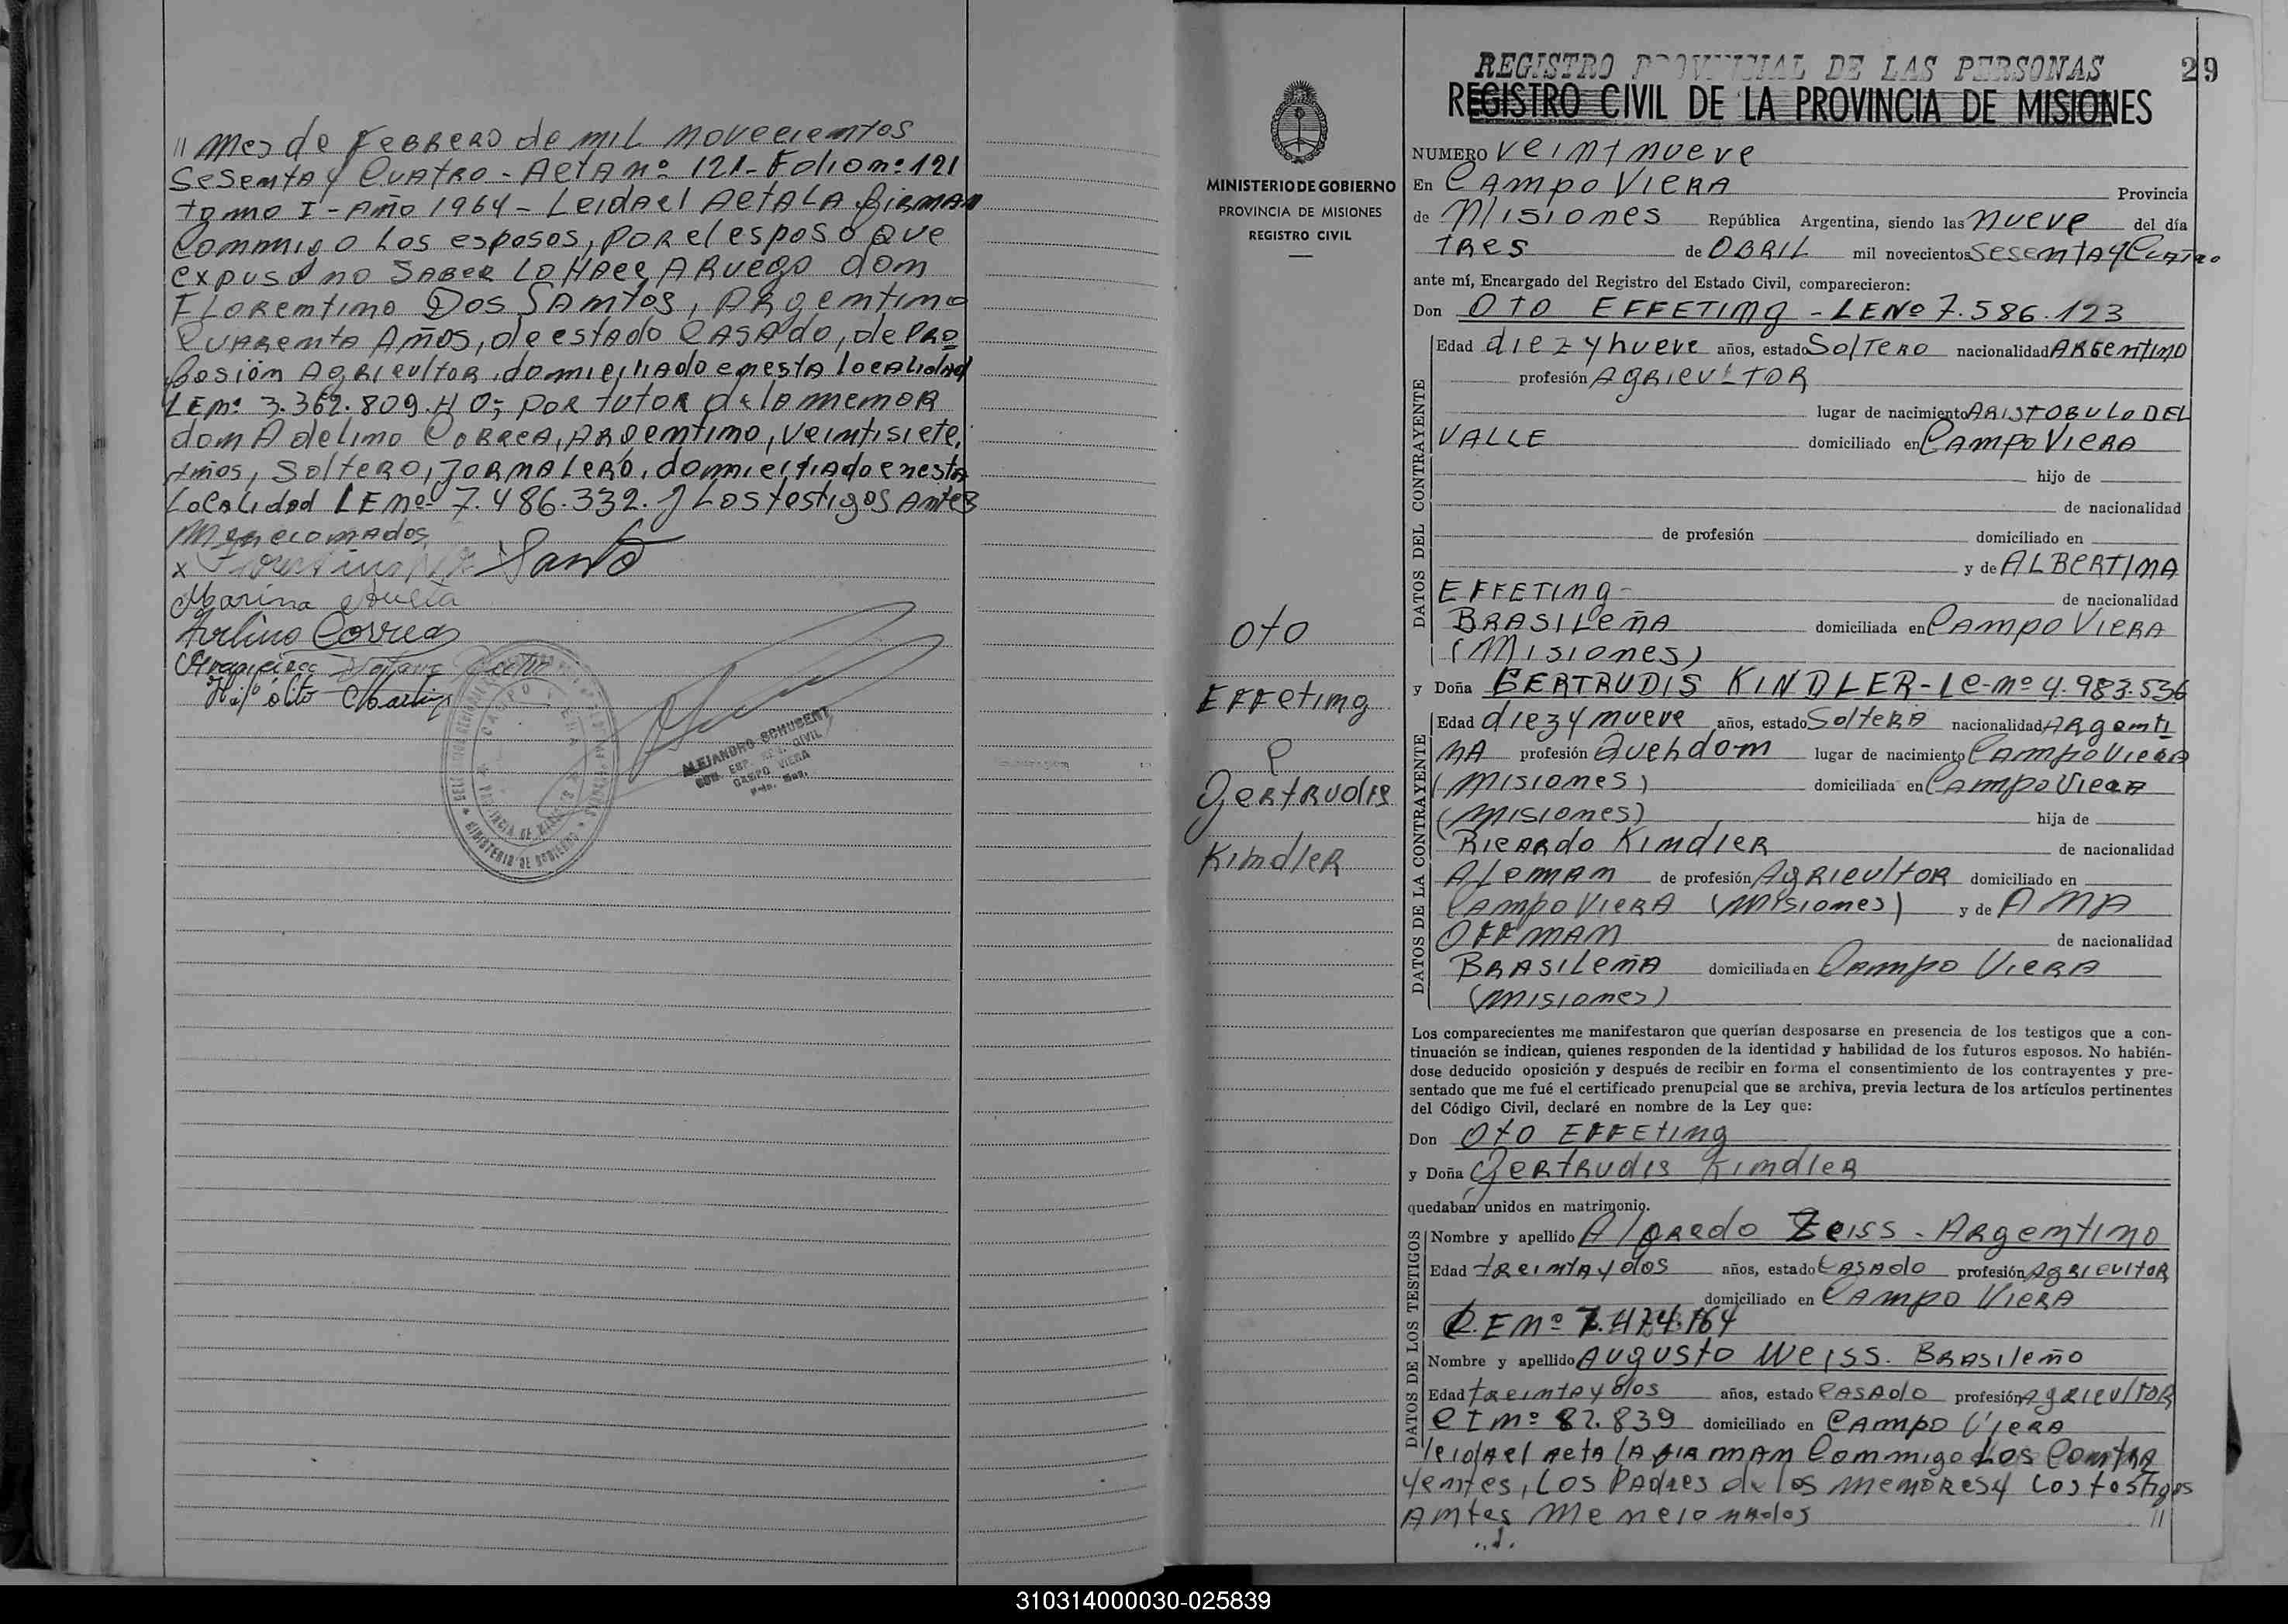 " mes de Febrero de mil novecientos
Sesenta y Cuatro - Acta nº 121 - Folio nº 121
tomo I - Año 1964 - Leida el Acta LA firman
Conmigo los esposos, por el esposo que
expuso no SABER LO HACE A Ruego don
Florentino Dos Santos, Argentino
Cuarenta Años, de estado CASADO, de PRO
fesión Agricultor, domiciliado en esta localidad
LE nº 3.362.809.
don Adelino CORREA, Argentino, veintisiete,
Años, Soltero, JORNALERO, domiciliado en esta
Localidad LE nº 7.486.332. y Los testigos Antes
Mencionados
x Florentino Santo
Marina
Avelino Correa
CAMPO VIERA
PROVINCIA DE MISIONES
MINISTERIO DE GOBIERNO
ALEJANDRO SCHUBERT
CIVIL
CAMPO VIERA
Mnes.
REGISTRO PROVINCIAL DE LAS PERSONAS
29
REGISTRO CIVIL DE LA PROVINCIA DE MISIONES
MINISTERIO DE GOBIERNO
PROVINCIA DE MISIONES
REGISTRO CIVIL
Oto
Effeting
Gertrudis
Kindler
NUMERO veintnueve
En CAMPO VIERA Provincia
de Misiones República Argentina, siendo las nueve del día
TRES de ABRIL mil novecientos Sesenta y Cuatro
ante mí, Encargado del Registro del Estado Civil, comparecieron:
Don OTO EFFETING - LE Nº 7.586.123
DATOS DEL CONTRAYENTE
Edad diez y nueve años, estado Soltero nacionalidad ARGENTINO
profesión AGRICULTOR
lugar de nacimiento ARISTOBULO DEL
VALLE domiciliado en CAMPO VIERA
hijo de
de nacionalidad
de profesión domiciliado en
y de ALBERTINA
EFFETING - de nacionalidad
BRASILEÑA domiciliada en CAMPO VIERA
(MISIONES)
y Doña GERTRUDIS KINDLER - LC - nº 4.983.536
DATOS DE LA CONTRAYENTE
Edad diez y nueve años, estado Soltera nacionalidad Argenti
NA profesión Quehdom lugar de nacimiento CAMPO VIERA
(MISIONES) domiciliada en CAMPO VIERA
(MISIONES) hija de
RICARDO KINDLER de nacionalidad
ALEMAN de profesión Agricultor domiciliado en
CAMPO VIERA (MISIONES) y de ANA
OFFMAN de nacionalidad
BRASILEÑA domiciliada en CAMPO VIERA
(MISIONES)
Los comparecientes me manifestaron que querían desposarse en presencia de los testigos que a con-
tinuación se indican, quienes responden de la identidad y habilidad de los futuros esposos. No habién-
dose deducido oposición y después de recibir en forma el consentimiento de los contrayentes y pre-
sentado que me fué el certificado prenupcial que se archiva, previa lectura de los artículos pertinentes
del Código Civil, declaré en nombre de la Ley que:
Don Oto EFFETING
y Doña Gertrudis Kindler
quedaban unidos en matrimonio.
DATOS DE LOS TESTIGOS
Nombre y apellido Alfredo Zeiss - Argentino
Edad treinta y dos años, estado CASADO profesión Agricultor
domiciliado en CAMPO VIERA
L.E nº 7.474.164
Nombre y apellido Augusto Weiss. Brasileño
Edad treinta y dos años, estado CASADO profesión Agricultor
CI nº 82.839 domiciliado en CAMPO VIERA
leida el Acta LA firman Conmigo Los Contra
yentes, Los Padres de los menores y Los testigos
Antes Mencionados "
310314000030-025839